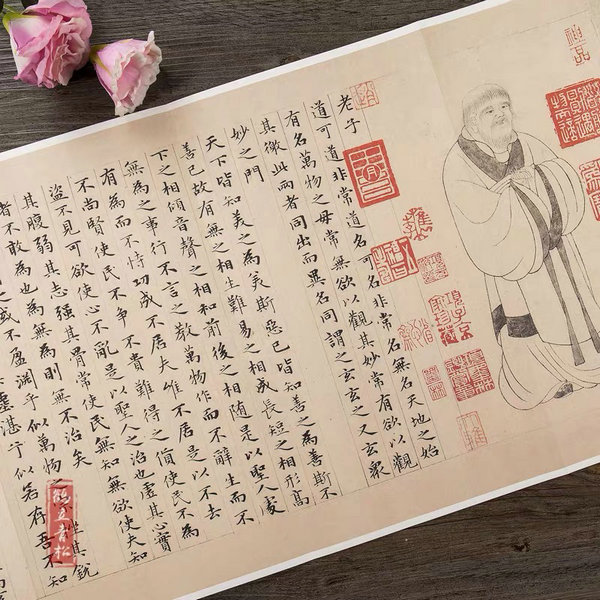 神品
老子
道可道非常道名可名非常名無名天地之始
有名萬物之母常無欲以觀其妙常有欲以觀
其徼此兩者同出而異名同謂之玄玄之又玄眾
妙之門
天下皆知美之為美斯惡已皆知善之為善斯不
善已故有無之相生難易之相成長短之相形高
下之相傾音聲之相和前後之相隨是以聖人處
無為之事行不言之教萬物作而不辭生而不
有為而不恃功成不居夫惟不居是以不去
不尚賢使民不爭不貴難得之貨使民不為
盜不見可欲使心不亂是以聖人之治也虛其心實
其腹弱其志強其骨常使民無知無欲使夫知
者不敢為也為無為則無不治矣
之或不盈淵乎似萬物之其銳
湛乎似若存吾不知
鶴立青松